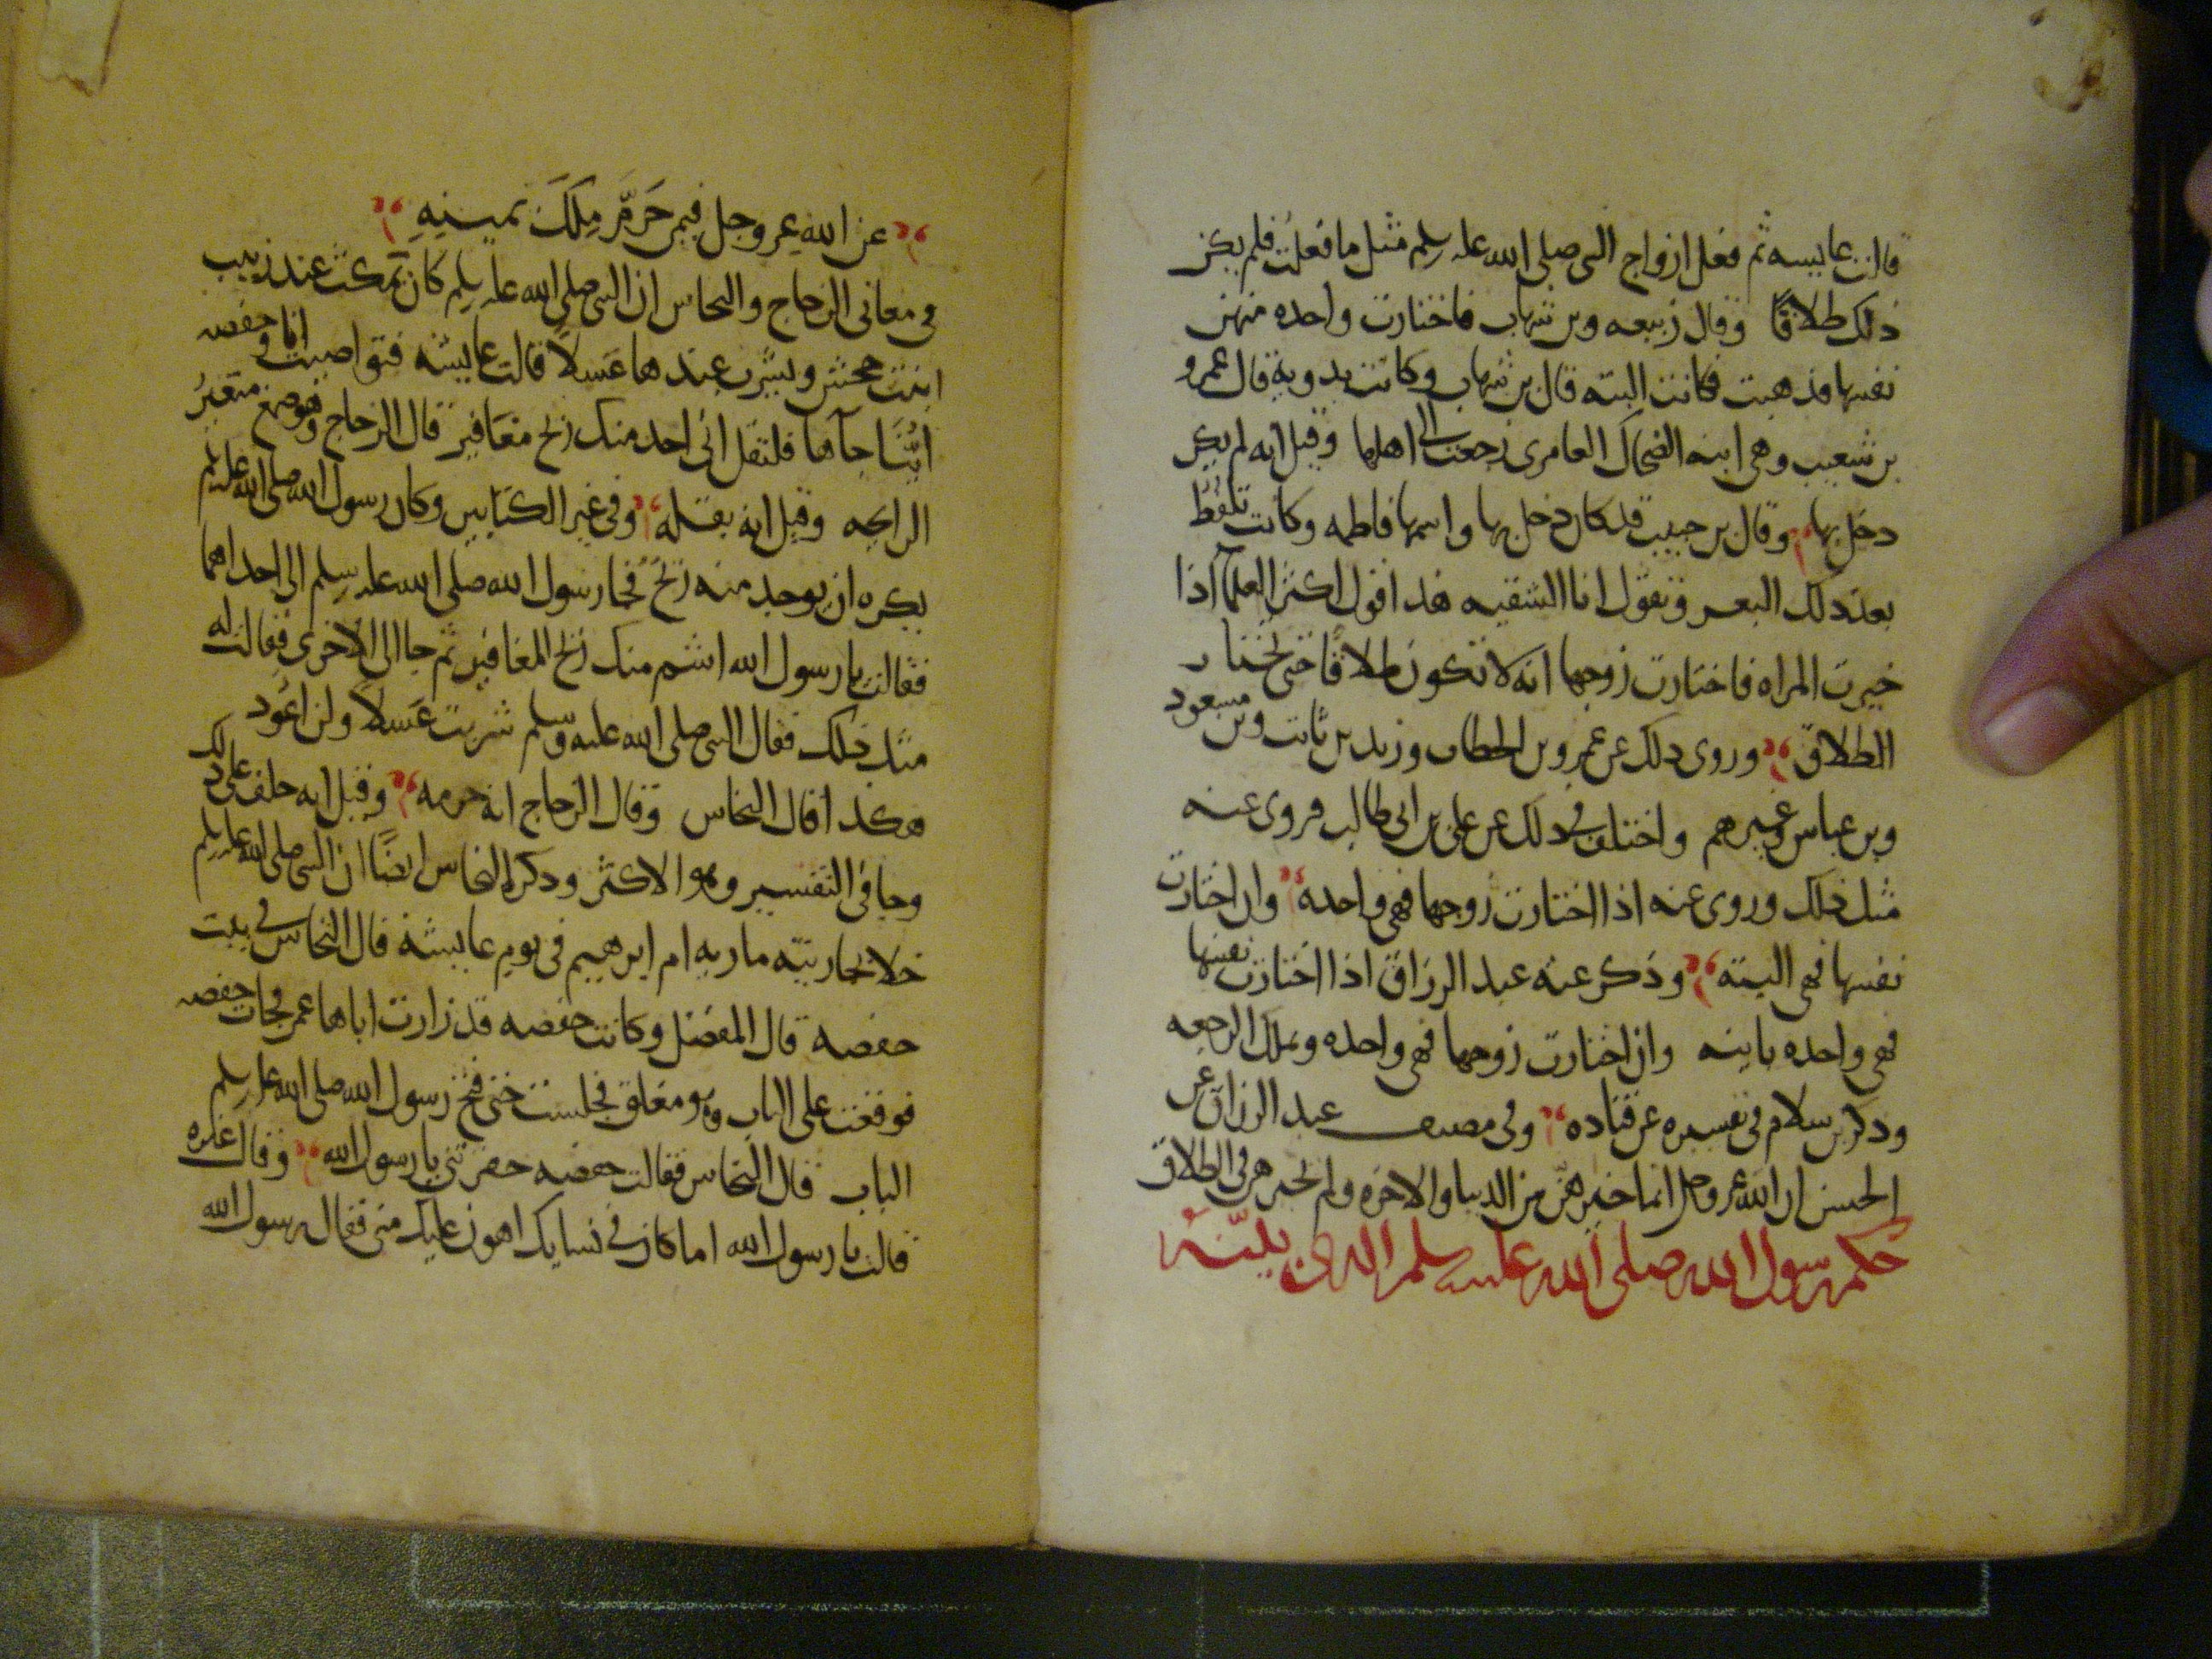 قالت عايسه ثم فعل ازواج النبى صلى الله عليه وسلم مثل ما فعلت فلم يكن
ذلك طلاقًا وقال ربيعه وبن شهاب فاختارت واحده منهن
نفسها فذهبت فكانت البته قال بن شهاب وكانت بدويه قال عمرو
بن شعيب وهى ابنه الضحاك العامرى رجعت الى اهلها وقيل انه لم يكن
دخل بها وقال بن حبيب قد كان دخل بها واسمها فاطمه وكانت تلقط
بعد ذلك البعر وتقول انا الشقيه هذا قول اكثر العلما اذا
خيرت المراه فاختارت زوجها انه لا تكون طلاقًا حتى تختار
الطلاق وروى ذلك عن عمر وبن الخطاب وزيد بن ثابت وبن مسعود
وبن عباس وغيرهم واختلف فى ذلك عن على بن ابى طالب فروى عنه
مثل ذلك وروى عنه اذا اختارت زوجها فهى واحده وان اختارت
نفسها فهى البته وذكر عنه عبد الرزاق اذا اختارت نفسها
فهى واحده باينه وان اختارت زوجها فهى واحده ويملك الرجعه
وذكر بن سلام فى تفسيره عن قتاده وفى مصنف عبد الرزاق عن
الحسن ان الله عز وجل انما خيرهن بين الدنيا والاخره ولم يخيرهن فى الطلاق
حكم رسول الله صلى الله عليه وسلم الذى بلبنه
عن الله عز وجل فيمن حَرَّم مِلكَ يمينهِ
فى معانى الزجاج والنحاس ان النبى صلى الله عليه وسلم كان يمكث عند زينب
ابنت جحش ويشرب عندها عَسلاً قالت عايشه فتواصيت انا وحفصه
ايّتنا جآها فلتقل انى اجد منك ريح مغافير قال الزجاج وهو صمغ متغيرُ
الرايحه وقيل انه بقله وفى غير الكتابين وكان رسول الله صلى الله عليه وسلم
يكره ان يوجد منه ريحٌ فجا رسول الله صلى الله عليه وسلم الى احداهما
فقالت يا رسول الله اشم منك ريح المغافير ثم جا الى الاخرى فقالت له
مثل ذلك فقال النبى صلى الله عليه وسلم شربت عَسلاً ولن اعود
هكذا قال النحاس وقال الزجاج انه حرمه وقيل انه حلف على ذلك
وجا فى التفسير وهو الاكثر وذكره النحاس ايضًا ان النبى صلى الله عليه وسلم
خلا بجاريته ماريه ام ابرهيم فى يوم عايشه قال النحاس فى بيت
حفصه قال المفضل وكانت حفصه قد زارت اباها عمر فجات حفصه
فوقفت على الباب وهو مغلق فجلست حتى فتح رسول الله صلى الله عليه وسلم
الباب قال النحاس فقالت حفصه حقرتنى يا رسول الله وقال غيره
قالت يا رسول الله اما كان فى نسايك اهون عليك منى فقال رسول الله